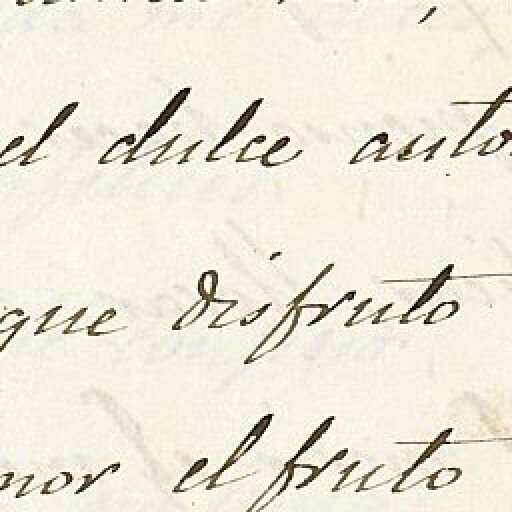 el dulce auto
que disfruto
mor el fruto